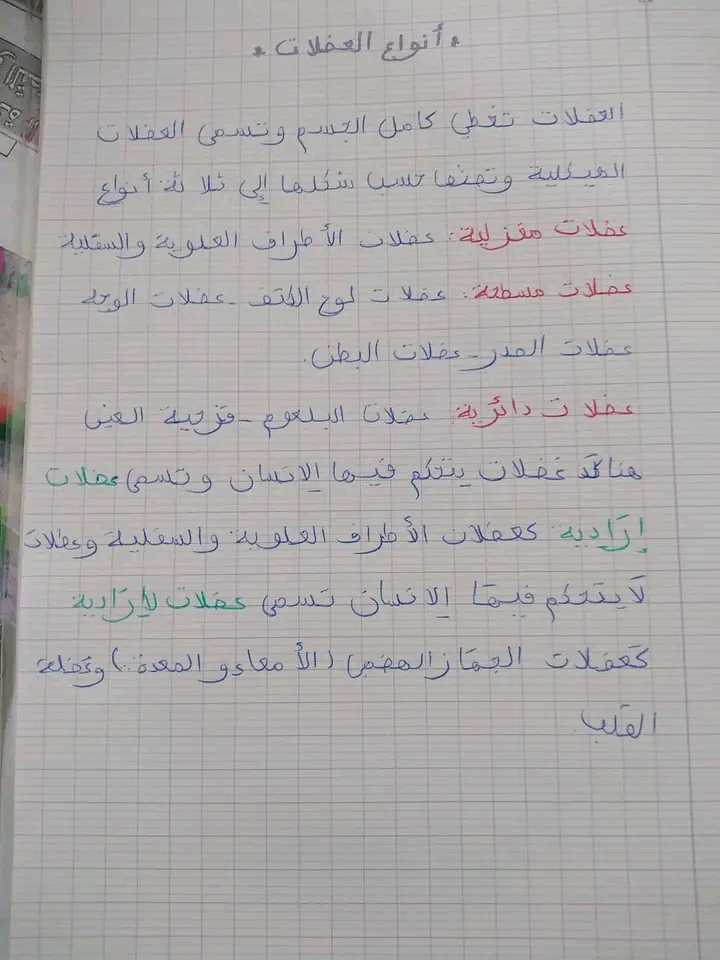 * أنواع العضلات *
العضلات تغطي كامل الجسم وتسمى العضلات
الهيكلية وتصنف حسب شكلها إلى ثلاثة أنواع
عضلات مغزلية: عضلات الأطراف العلوية والسفلية
عضلات مسطحة: عضلات لوح الكتف - عضلات الوجه
عضلات الصدر - عضلات البطن.
عضلات دائرية: عضلات البلعوم - قزحية العين
هناك عضلات يتحكم فيها الإنسان وتسمى عضلات
إرادية كعضلات الأطراف العلوية والسفلية وعضلات
لا يتحكم فيها الإنسان تسمى عضلات لاإرادية
كعضلات الجهاز الهضمي (الأمعاء و المعدة..) وعضلة
القلب